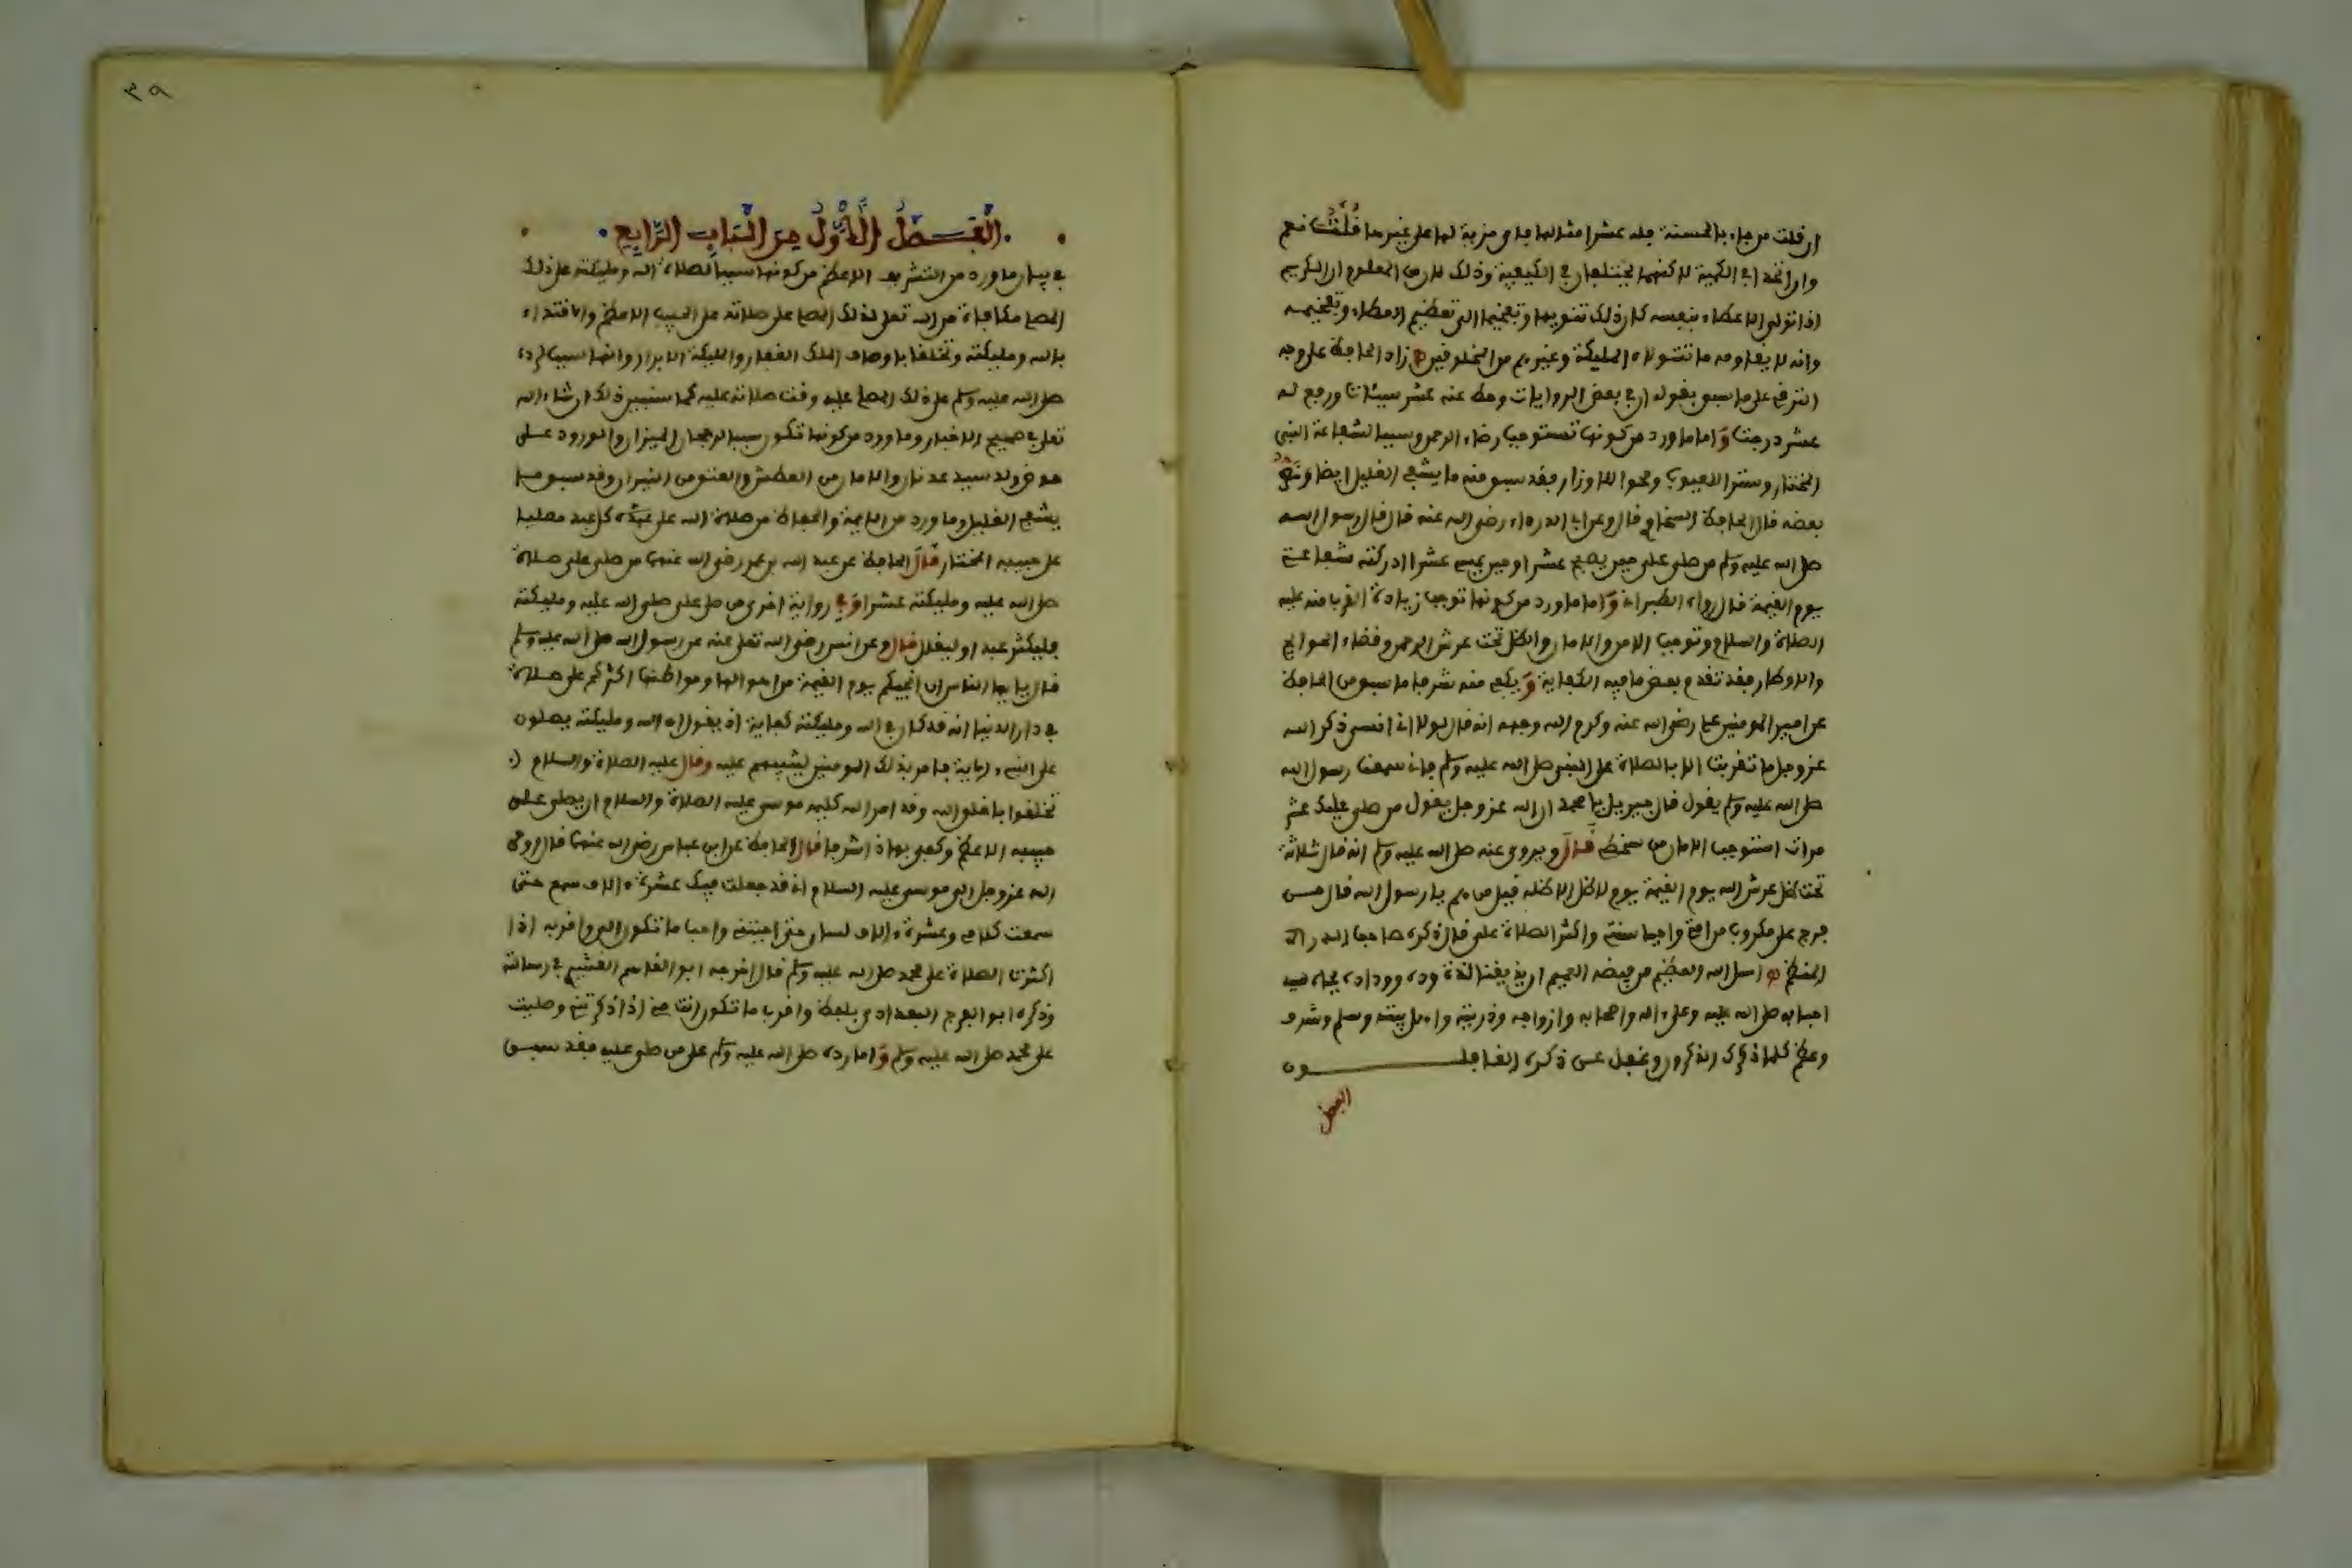 ان قلت من جاء بالحسنة فله عشر امثالها فاي مزية لها على غيرها قلت نعم
وان اتحدا في الكمية لاكنهما يختلفان في الكيفية وذلك لان من المعلوم ان الكريم
اذا تولى الاعطاء بنفسه كان ذلك تنويها وتفخيما الى تعظيم العطاء وتفخيمه
وانه لا يقاومه ما تتولاه المليكة وغيرهم من المخلوقين زاد الحافظ على وجه
الترقي على ما سبق بقوله ان في بعض الروايات وحط عنه عشر سيئات ورفع له
عشر درجت واما ما ورد من كونها تستوجب رضاء الرحمن وسببا لشفاعة النبي
المختار وستر العيوب ومحو الاوزار فقد سبق منه ما يشفي الغليل ايضا
بعضه قال الحافظ السخاوي قال وعن ابي الدرداء رضي الله عنه قال قال رسول الله
صلى الله عليه وسلم من صلى على حين يصبح عشرا وحين يمسي عشرا ادركته شفاعتي
يوم القيمة قال رواه الطبراني واما ما ورد من كونها توجب زيادة القرب منه عليه
الصلاة والسلام وتوجب الامن والامان والظل تحت عرش الرحمن وقضاء الحوايج
والاوطار فقد تقدم بعض ما فيه الكفاية ويكفي منه شرفا ما سبق من الحافظ
عن امير المومنين علي رضي الله عنه وكرم الله وجهه انه قال لولا اني انسى ذكر الله
عز وجل ما تقربت الا بالصلاة على النبي صلى الله عليه وسلم فاني سمعت رسول الله
صلى الله عليه وسلم يقول قال جبريل يا محمد ان الله عز وجل يقول من صلى عليك عشر
مرات استوجب الامان من سخطي قال ويروى عنه صلى الله عليه وسلم انه قال ثلاثة
تحت ظل عرش الله يوم القيمة يوم لا ظل الا ظله قيل من هم يا رسول الله قال من
فرج على مكروب من امتي واحيا سنتي واكثر الصلاة علي قال ذكره صاحب الدر
المنظم اسل الله العظيم من فيضه العميم ان يذيقنا لذة وده ووداده بجاه سيد
احبابه صلى الله عليه وعلى اله واصحابه وازواجه وذريته واهل بيته وسلم وشرف
وعظم كلما ذكرك الذاكرون وغفل عن ذكره الغافلــــــون
الفصل
٣٩
الفصل الاول من الباب الرابع
في بيان ما ورد من التشريف الاعظم من كونها سببا لصلاة الله ومليكته على ذلك
المصلي مكافاة من الله تعلى لذلك المصلي على صلاته على الحبيب الاعظم والاقتداء
بالله ومليكته وتخلقا باوصاف الملك الغفار والمليكة الابرار وانها سببا لرده
صلى الله عليه وسلم على ذلك المصلي عليه وقت صلاته عليه كما سنبين ذلك ان شاء الله
تعلى في صحيح الاخبار وما ورد من كونها تكون سببا لرجحان الميزان والورود على
حوض ولد سيد عدنان والامان من العطش والعتق من النيران وقد سبق ما
يشفي الغليل وما ورد من الايمة والحفاظ من صلاة الله على عبده كل عبد مصليا
على حبيبه المختار قال الحافظ عن عبد الله بن عمر رضي الله عنهما من صلى علي صلاة
صلى الله عليه ومليكته عشرا وفي رواية اخرى من صلى علي صلى الله عليه ومليكته
فليكثر عبد او ليقلل قال وعن انس رضي الله تعلى عنه عن رسول الله صلى الله عليه وسلم
قال يا يها الناس ان انجيكم يوم القيمة من اهوالها ومواطنها اكثركم علي صلاة
في دار الدنيا انه قد كان في الله ومليكته كفاية اذ يقول ان الله ومليكته يصلون
على النبي الاية فامر بذلك المومنين ليثيبهم عليه وقال عليه الصلاة والسلام
تخلقوا باخلاق الله وقد امر الله كليمه موسى عليه الصلاة والسلام ان يصلي على
حبيبه الاعظم وكفى بهاذا شرفا قال الحافظ عن ابن عباس رضي الله عنهما قال اوحى
الله عز وجل الى موسى عليه السلام اني قد جعلت فيك عشرة الاف سمع حتى
سمعت كلامي وعشرة الاف لسان حتى اجبتني واحب ما تكون الي واقربه اذا
اكثرت الصلاة على محمد صلى الله عليه وسلم قال اخرجه ابو القاسم القشيري في رسالته
وذكره ابو الفرج البغدادي بلفظ واقرب ما تكون انت مني اذا ذكرتني وصليت
على محمد صلى الله عليه وسلم واما رده صلى الله عليه وسلم على من صلى عليه فقد سبق